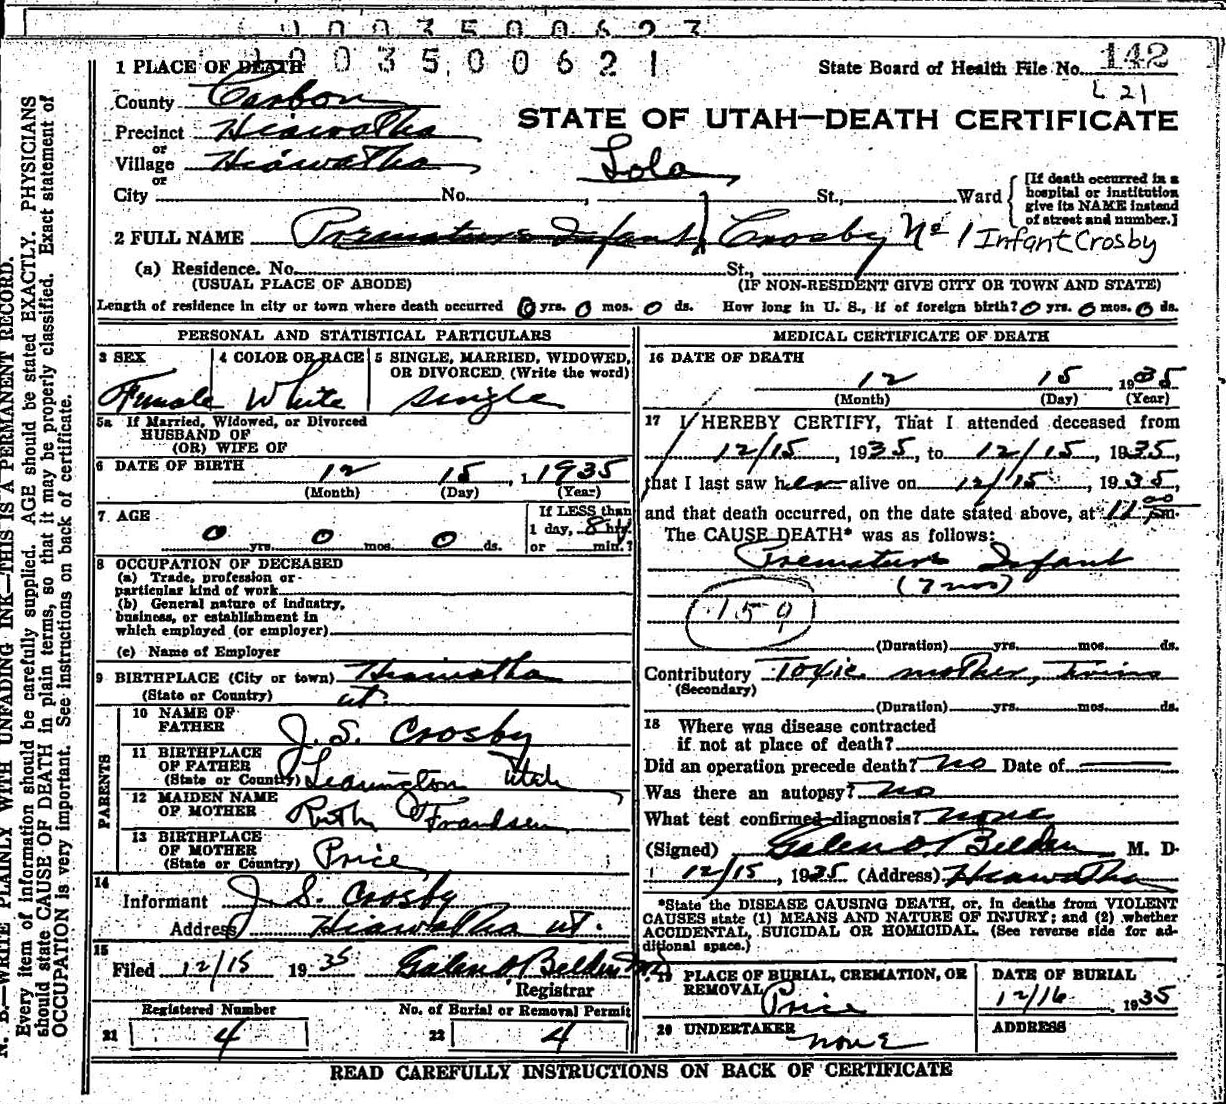 0 0 3 5 0 0 6 2 3
1 0 0 3 5 0 0 6 2 1
1 PLACE OF DEATH
State Board of Health File No. 142
L 21
County Carbon
STATE OF UTAH—DEATH CERTIFICATE
Precinct Hiawatha
or
Village Hiawatha
or
Lola
City No. , St., Ward
[If death occurred in a hospital or institution give its NAME instead of street and number.]
2 FULL NAME Premature Infant Crosby No 1 Infant Crosby
(a) Residence. No. St.,
(USUAL PLACE OF ABODE) (IF NON-RESIDENT GIVE CITY OR TOWN AND STATE)
Length of residence in city or town where death occurred 0 yrs. 0 mos. 0 ds. How long in U. S., if of foreign birth? 0 yrs. 0 mos. 0 ds.
PERSONAL AND STATISTICAL PARTICULARS
3 SEX 4 COLOR OR RACE 5 SINGLE, MARRIED, WIDOWED,
OR DIVORCED (Write the word)
Female White Single
5a If Married, Widowed, or Divorced
HUSBAND OF
(OR) WIFE OF
6 DATE OF BIRTH 12 15, 1935
(Month) (Day) (Year)
7 AGE
0 yrs. 0 mos. 0 ds.
If LESS than
1 day, 8 hrs
or min.?
8 OCCUPATION OF DECEASED
(a) Trade, profession or
particular kind of work
(b) General nature of industry,
business, or establishment in
which employed (or employer)
(c) Name of Employer
9 BIRTHPLACE (City or town) Hiawatha
(State or Country) Ut.
PARENTS
10 NAME OF
FATHER J. S. Crosby
11 BIRTHPLACE
OF FATHER
(State or Country) Leamington Utah
12 MAIDEN NAME
OF MOTHER Ruth Frandsen
13 BIRTHPLACE
OF MOTHER
(State or Country) Price
14
Informant J. S. Crosby
Address Hiawatha Ut.
15
Filed 12/15 1935 Galen O Belden MD
Registrar
Registered Number No. of Burial or Removal Permit
21 4 22 4
MEDICAL CERTIFICATE OF DEATH
16 DATE OF DEATH
12 15, 1935
(Month) (Day) (Year)
17 I HEREBY CERTIFY, That I attended deceased from
12/15, 1935, to 12/15, 1935,
that I last saw her alive on 12/15, 1935,
and that death occurred, on the date stated above, at 11 00 pm.
The CAUSE DEATH* was as follows:
Premature Infant
(7 mos)
159
(Duration) yrs. mos. ds.
Contributory Toxic mother, twins
(Secondary)
(Duration) yrs. mos. ds.
18 Where was disease contracted
if not at place of death?
Did an operation precede death? no Date of
Was there an autopsy? no
What test confirmed diagnosis? none
(Signed) Galen O Belden M. D.
12/15, 1935 (Address) Hiawatha
*State the DISEASE CAUSING DEATH, or, in deaths from VIOLENT
CAUSES state (1) MEANS AND NATURE OF INJURY; and (2) whether
ACCIDENTAL, SUICIDAL OR HOMICIDAL. (See reverse side for ad-
ditional space.)
19 PLACE OF BURIAL, CREMATION, OR
REMOVAL Price
DATE OF BURIAL
12/16 1935
20 UNDERTAKER none
ADDRESS
READ CAREFULLY INSTRUCTIONS ON BACK OF CERTIFICATE
N. B.—WRITE PLAINLY WITH UNFADING INK—THIS IS A PERMANENT RECORD.
Every item of information should be carefully supplied. AGE should be stated EXACTLY. PHYSICIANS
should state CAUSE OF DEATH in plain terms, so that it may be properly classified. Exact statement of
OCCUPATION is very important. See instructions on back of certificate.